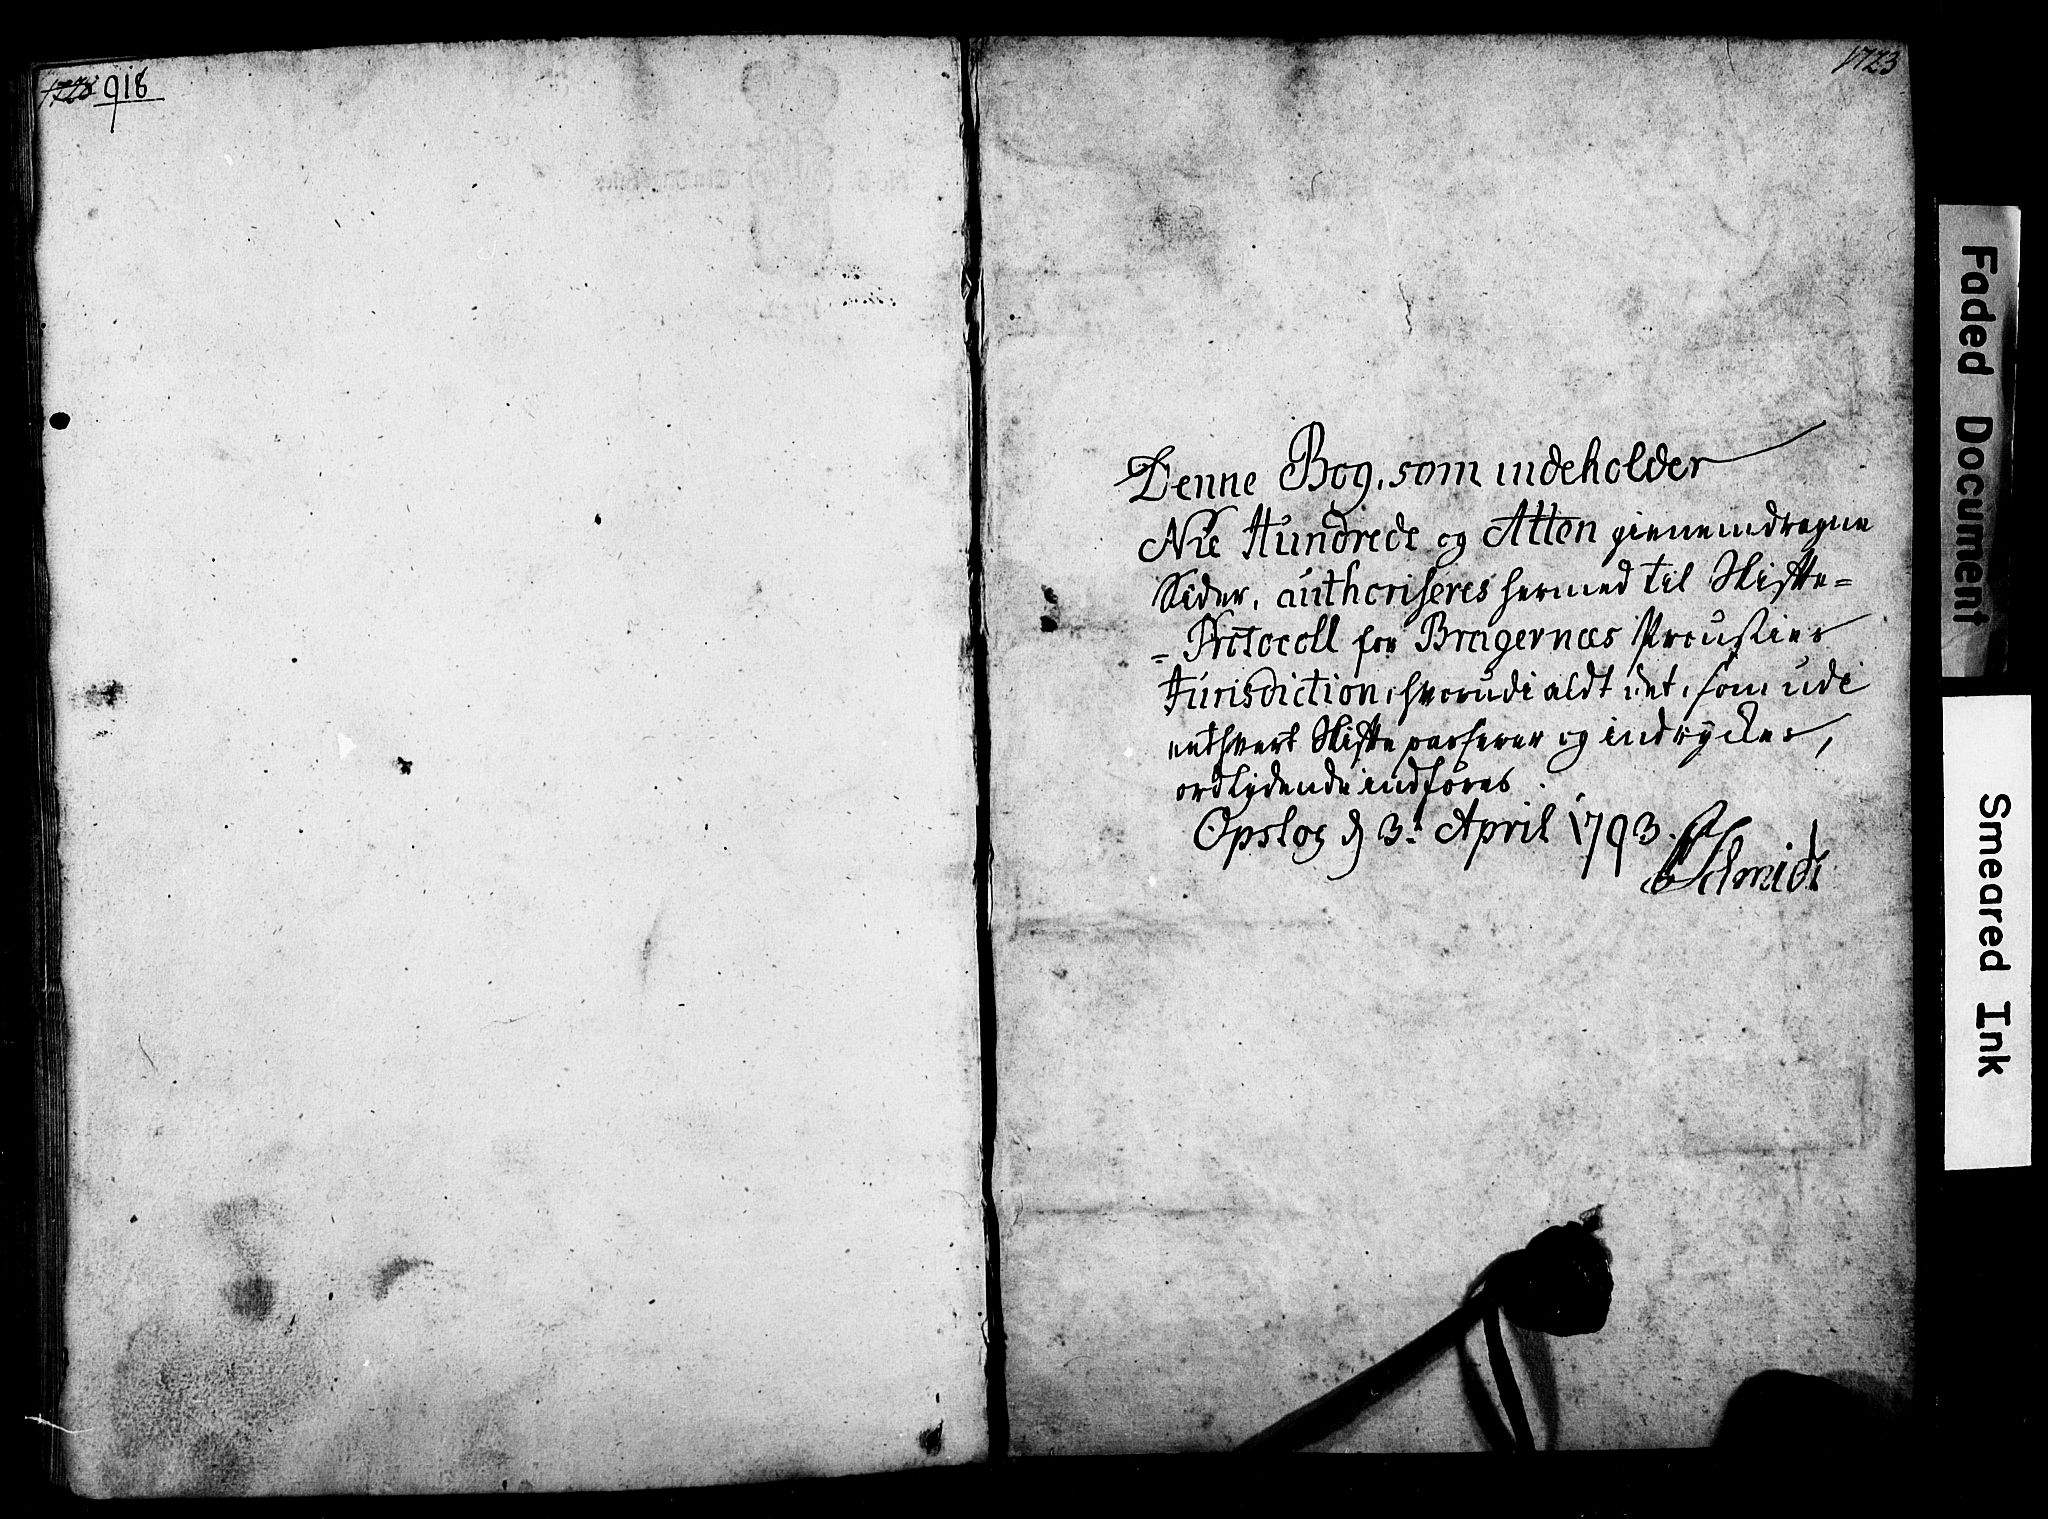 918
1723
Denne Bog, som indeholder
Nie Hundrede og Atten gienemdragne
Sider, authoriseres hermed til Skifte=
=Protocoll for Bragernæs Proustier
Jurisdiction, hvorudi aldt det, som udi
enthvert Skifte passerer og indrycker,
ordlydende indføres.
Opslog d 3. April 1793.
Schmidt
Faded Document
Smeared Ink